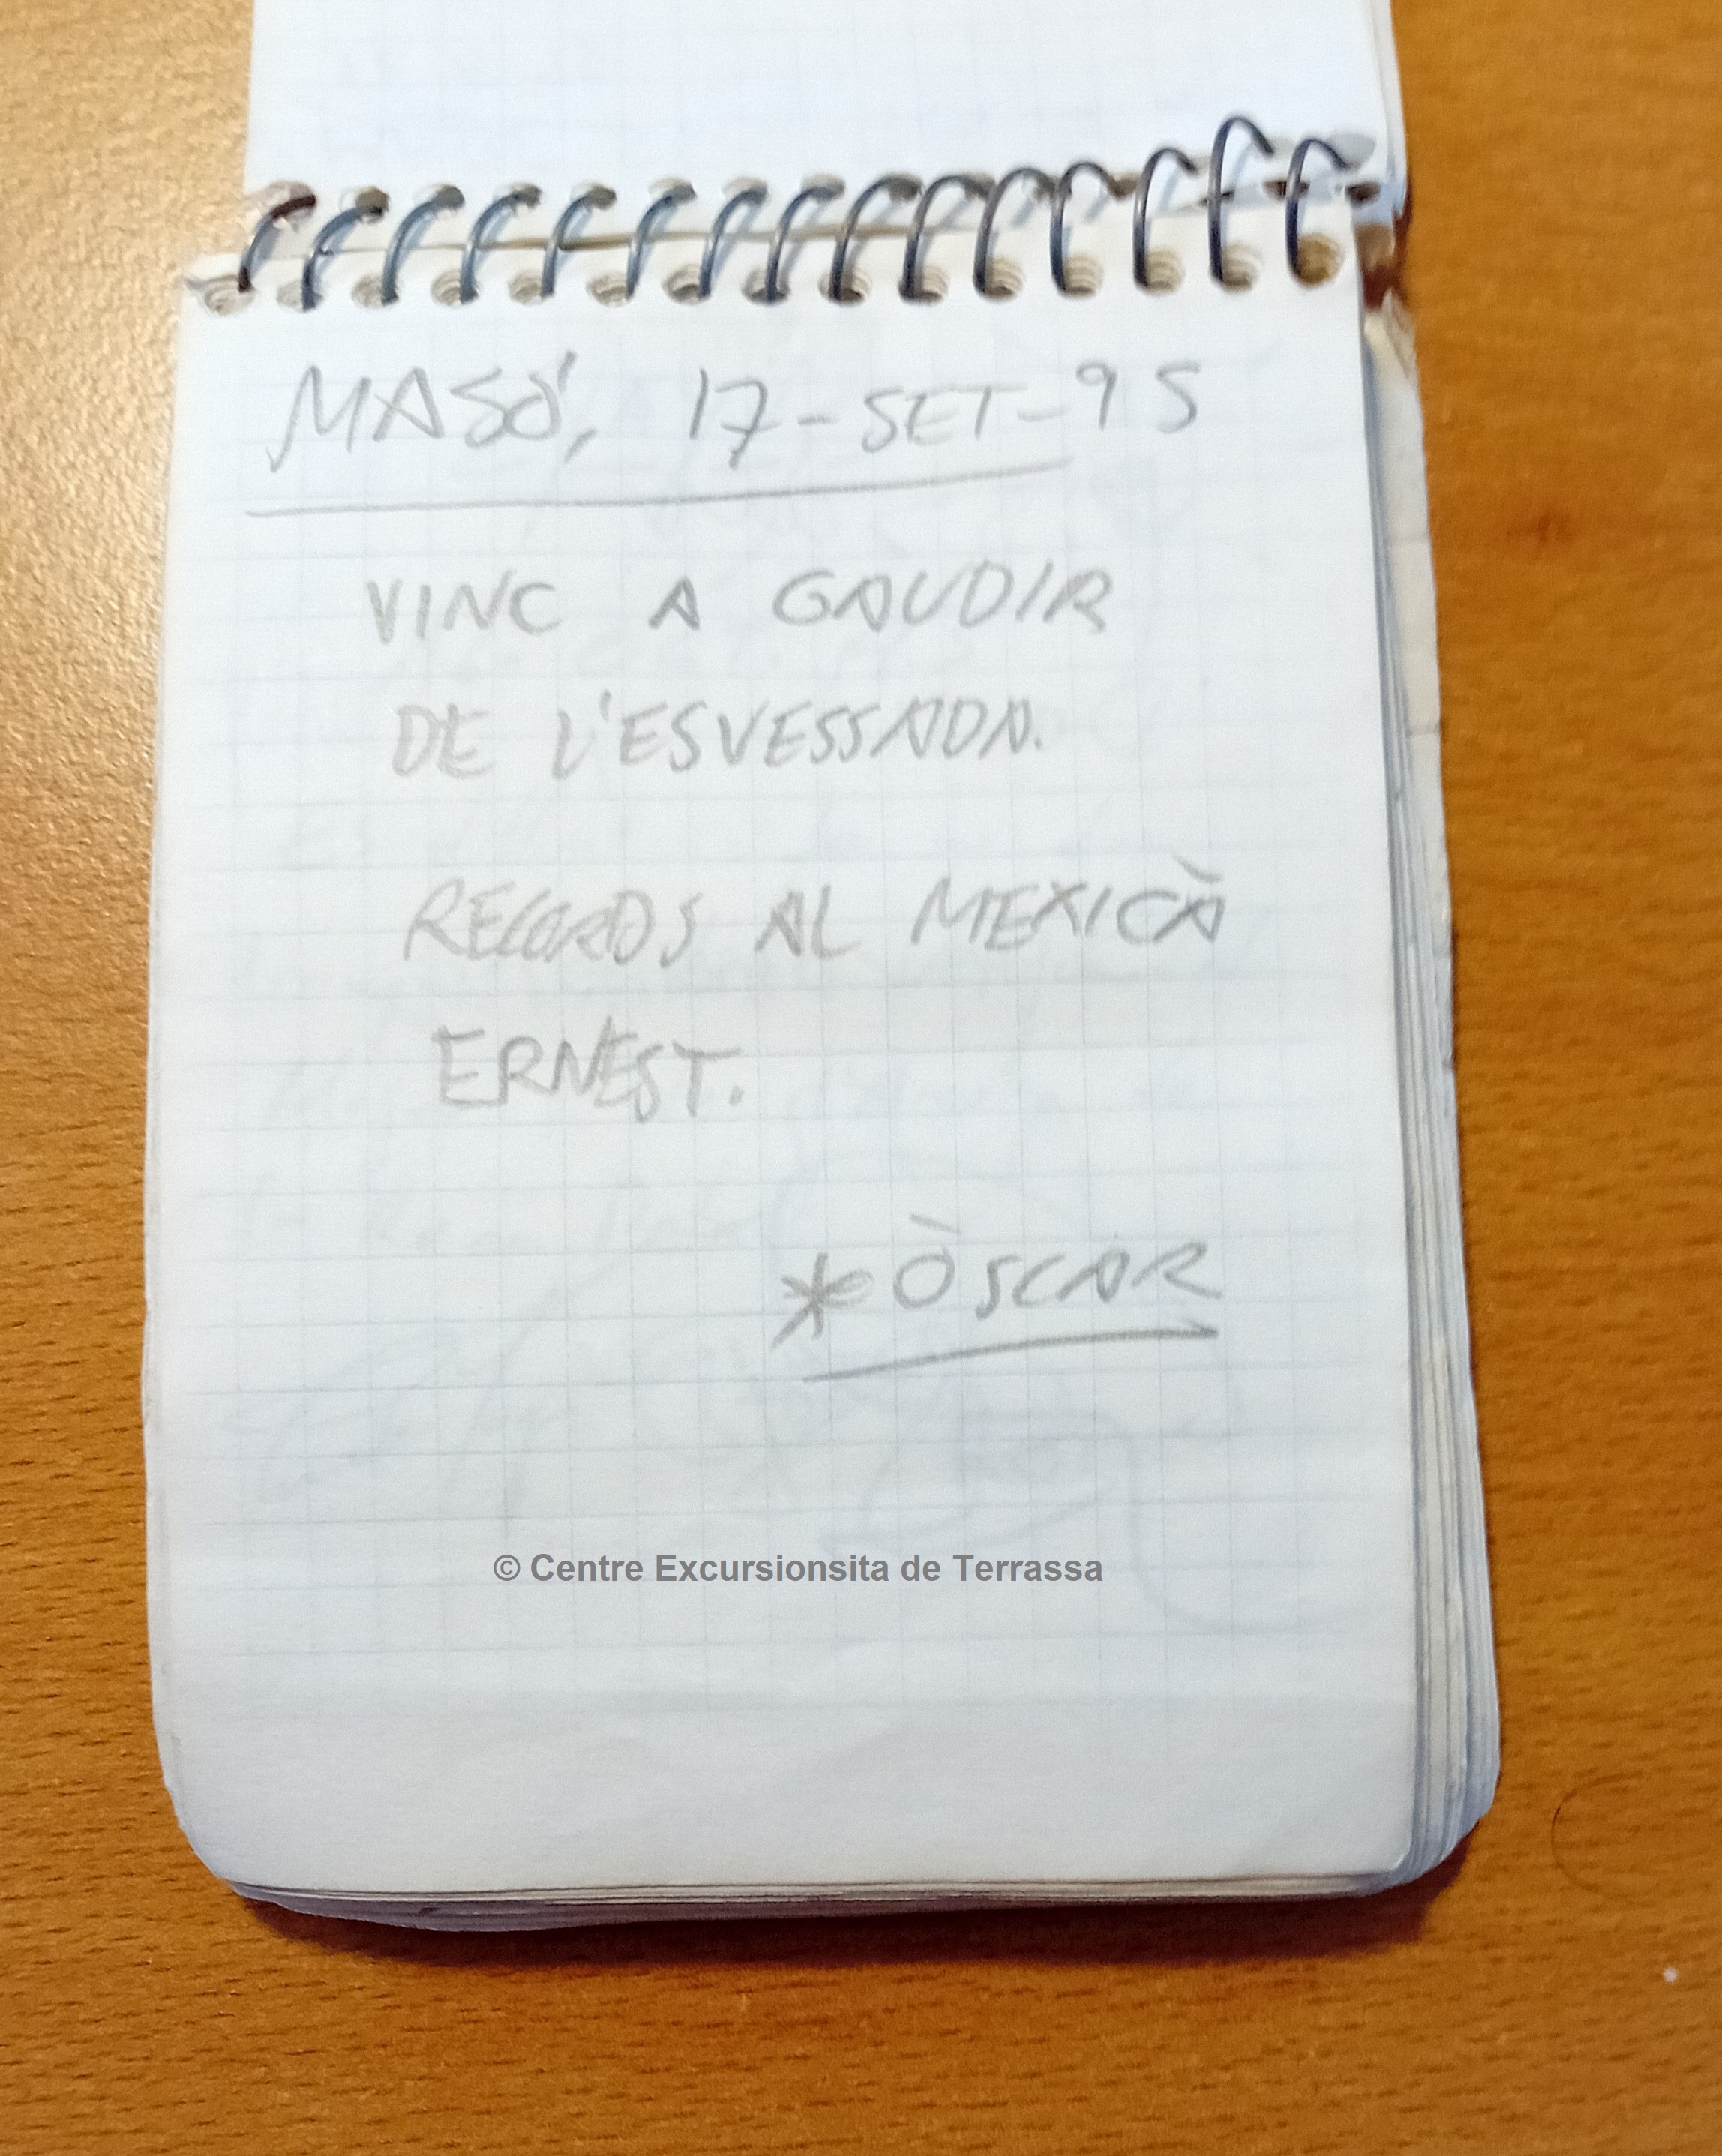 MASÓ, 17-SET-95
VINC A GAUDIR
DE L'ESVESSADA.
RECORDS AL MEXICÀ
ERNEST.
* ÒSCAR
© Centre Excursionsita de Terrassa